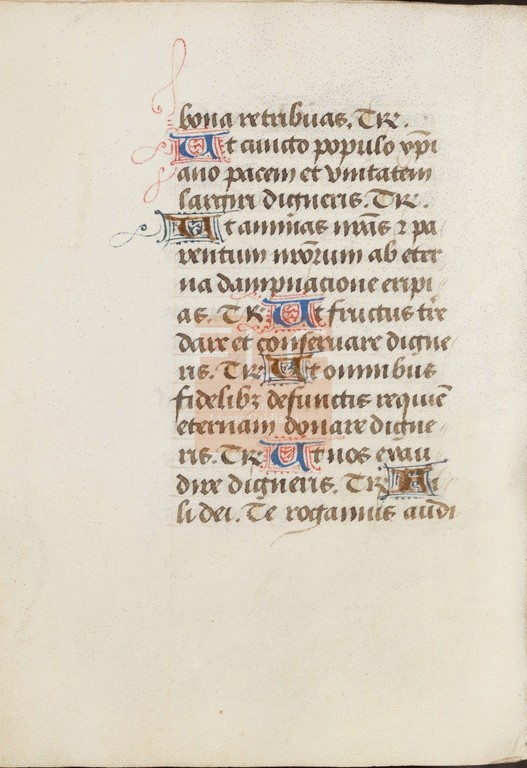 bona retribuas. TR̄.
Ut cuncto populo xp̄i
ano pacem et vnitatem
largiri digneris. TR̄.
Ut animas nr̄as ⁊ pa
rentum nr̄orum ab eter
na dampnacione eripi
as. TR̄. Ut fructus tr̄e
dare et conseruare digne
ris. TR̄. Ut omnibus
fidelibꝫ defunctis requiē
eternam donare digne
ris. TR̄. Ut nos exau
dire digneris. TR̄. Fi
li dei. Te rogamus audi